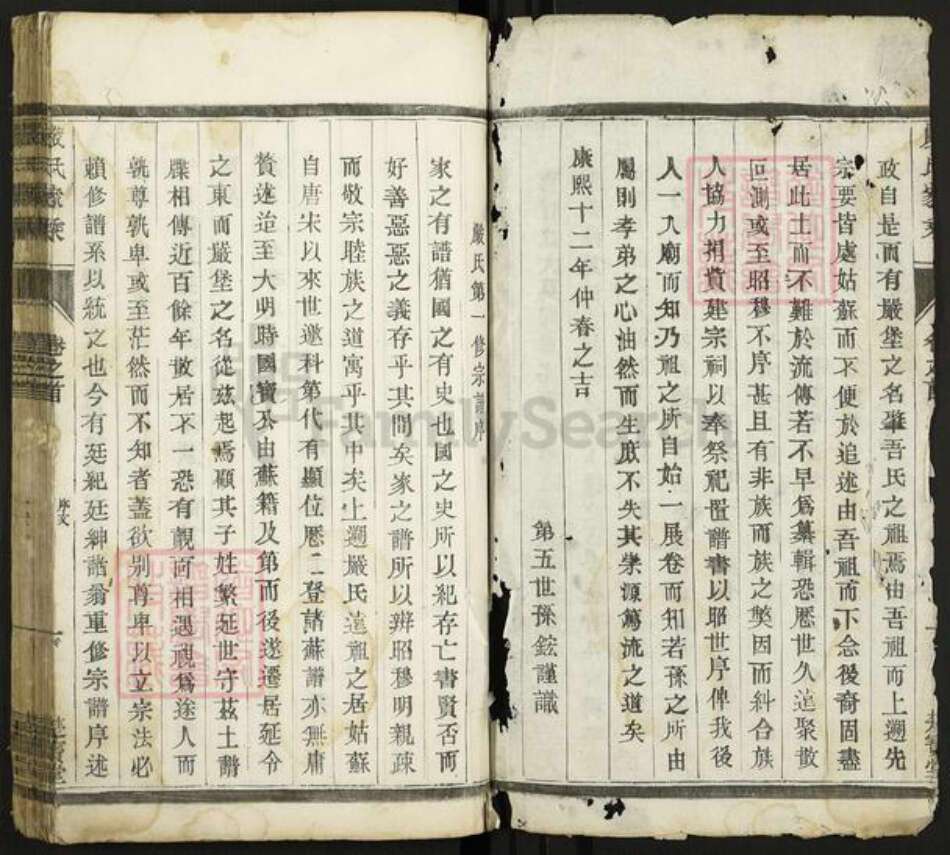 政自是而有嚴堡之名肇吾氏之祖焉由吾祖而上遡先
宗要皆處姑蘇而不便於追述由吾祖而下念後裔固盡
居此土而不難於流傳若不早爲纂輯恐歷世久遠聚散
叵測或至昭穆不序甚且有非族而族之獘因而糾合族
人協力捐貲建宗祠以奉祭祀置譜書以昭世序俾我後
人一入廟而知乃祖之所自始一展卷而知若孫之所由
屬則孝弟之心油然而生庶不失其崇源篤流之道矣
康熙十二年仲春之吉
第五世孫鋐謹識
嚴氏第一修宗譜序
家之有譜猶國之有史也國之史所以紀存亡書賢否而
好善惡惡之義存乎其間矣家之譜所以辨昭穆明親疎
而敬宗睦族之道寓乎其中矣上遡嚴氏遠祖之居姑蘇
自唐宋以來世邀科第代有顯位歷二登諸蘇譜亦無庸
贅述迨至大明時國寶公由蘇籍及第而後遂遷居延令
之東而嚴堡之名從茲起焉顧其子姓繁延世守茲土譜
牒相傳近百餘年散居不一恐有覿面相遇視爲途人而
孰尊孰卑或至茫然而不知者蓋欲别尊卑以立宗法必
賴修譜系以統之也今有廷紀廷紳諸翁重修宗譜序述
嚴氏家乘
卷之首
序文
FamilySearch